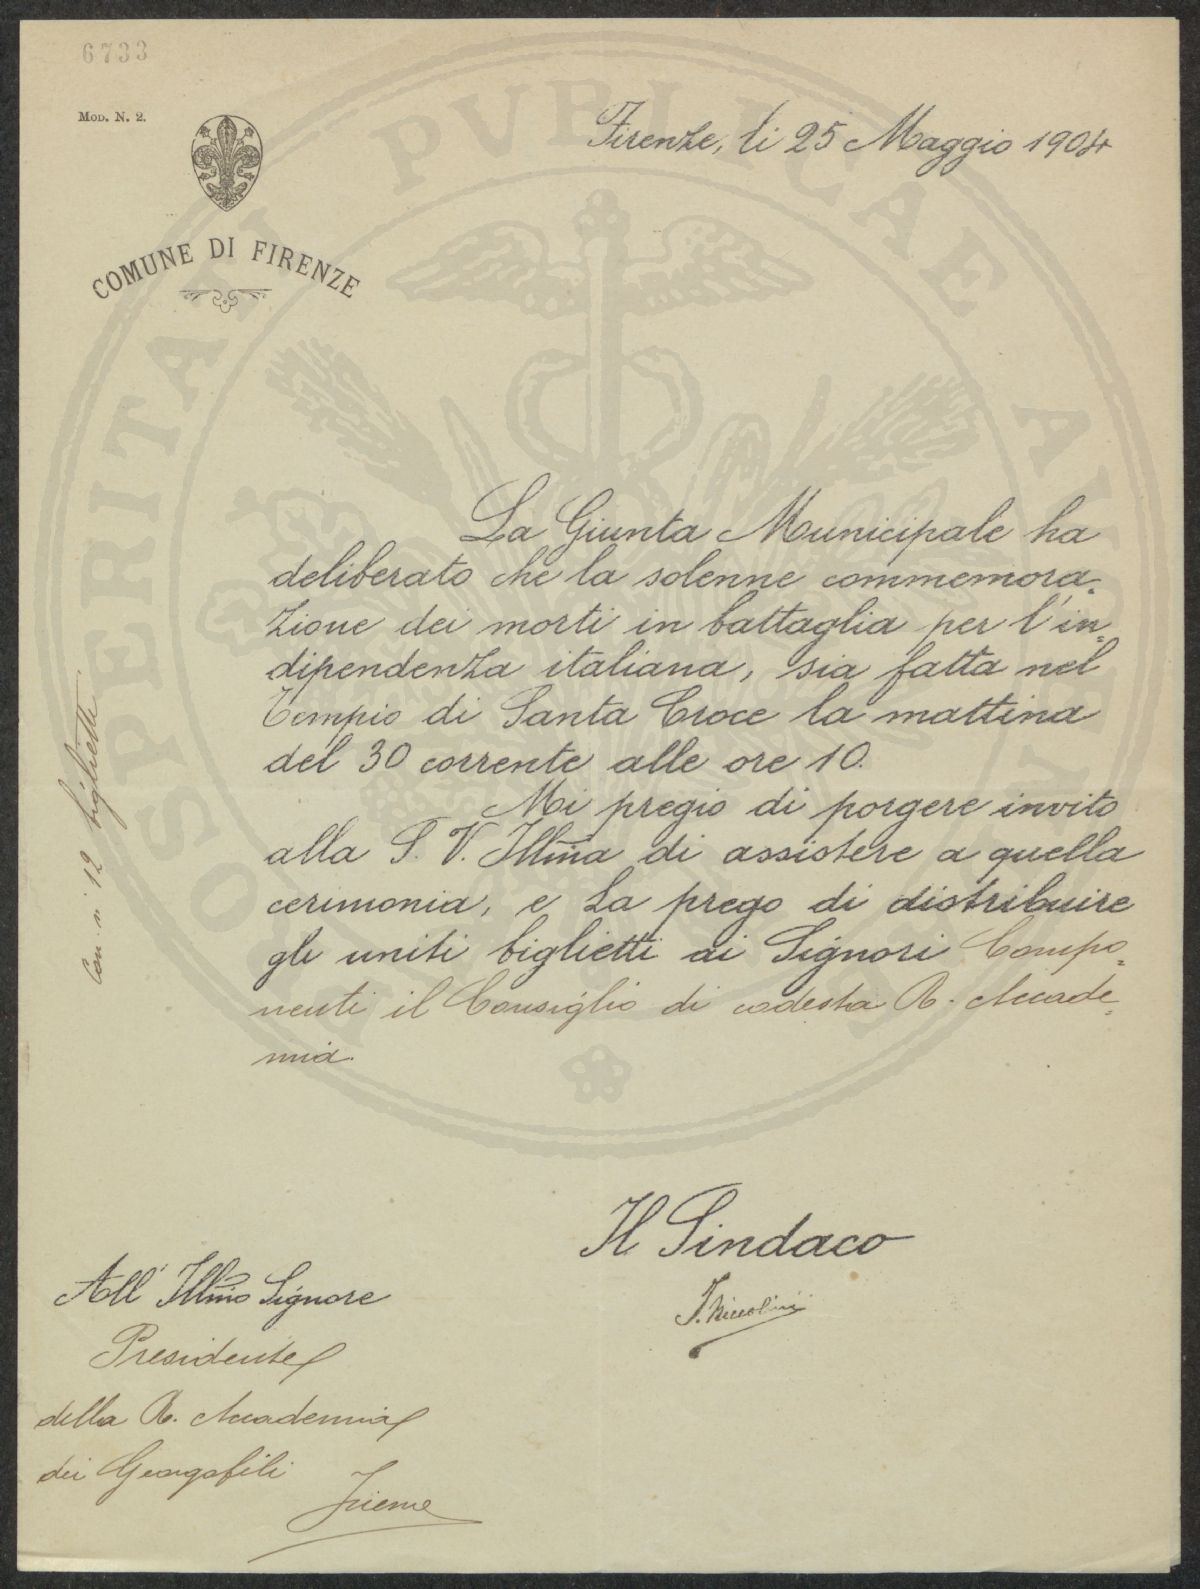 6733
MOD. N. 2.
COMUNE DI FIRENZE
Firenze, li 25 Maggio 1904
La Giunta Municipale ha
deliberato che la solenne commemora=
zione dei morti in battaglia per l'in=
dipendenza italiana, sia fatta nel
Tempio di Santa Croce la mattina
del 30 corrente alle ore 10.
Mi pregio di porgere invito
alla S. V. Illma di assistere a quella
cerimonia, e La prego di distribuire
gli uniti biglietti ai Signori Compo=
nenti il Consiglio di codesta R. Accade=
mia.
Con n. 12 biglietti
Il Sindaco
I. Niccolini
All' Illmo Signore
Presidente
della R. Accademia
dei Georgofili
Firenze
PROSPERITATI PVBLICAE AVGENDAE